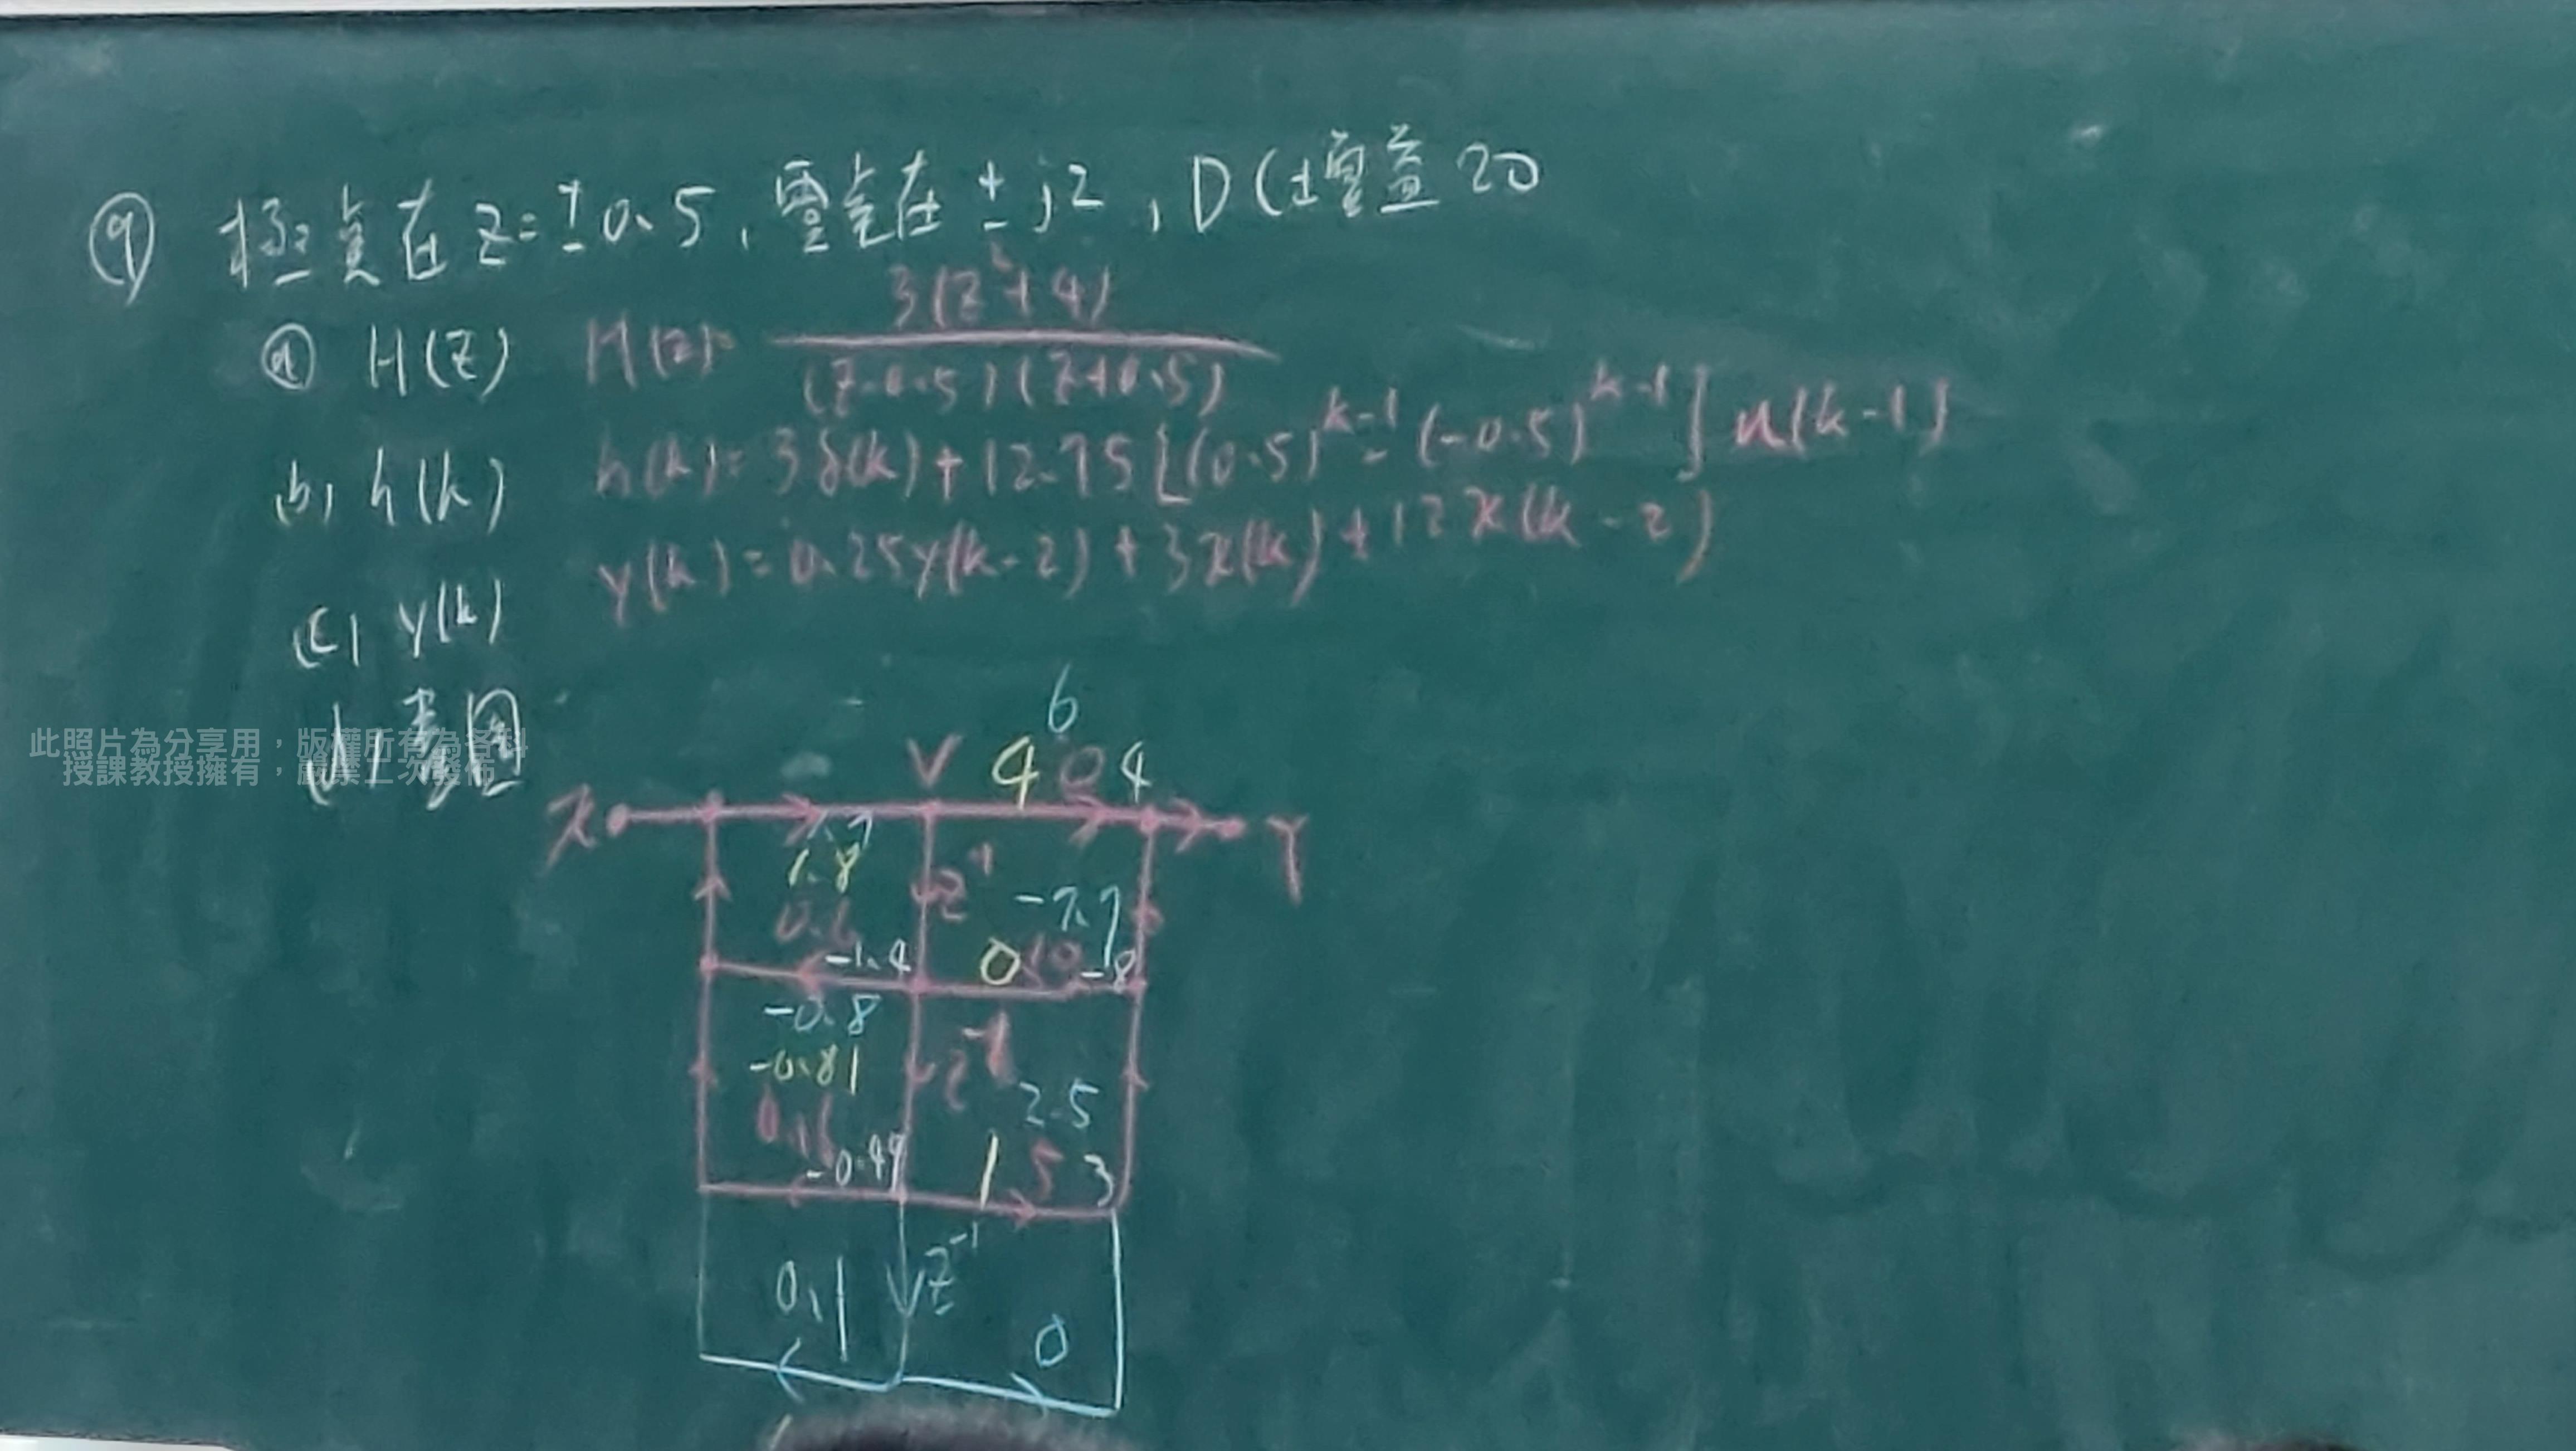 ⑨ 極點在 z=±0.5, 零點在 ±j2, DC增益 20
ⓐ H(z) H(z)= 3(z²+4)
(z-0.5)(z+0.5)
(b) h(k) h(k)=3δ(k)+12.75[(0.5)^k-1 - (-0.5)^k-1] u(k-1)
(c) y(k) y(k)=0.25y(k-2)+3x(k)+12x(k-2)
畫圖
此照片為分享用，版權所有為各科
授課教授擁有，嚴禁二次發佈
6
V 4 0 4
X Y
1.7
1.8 z⁻¹
-7.7
-1.4 0 10 -8
-0.8
-0.81 z⁻¹ 2.5
0.16
-0.49 1 5 3
0.1 z⁻¹ 0